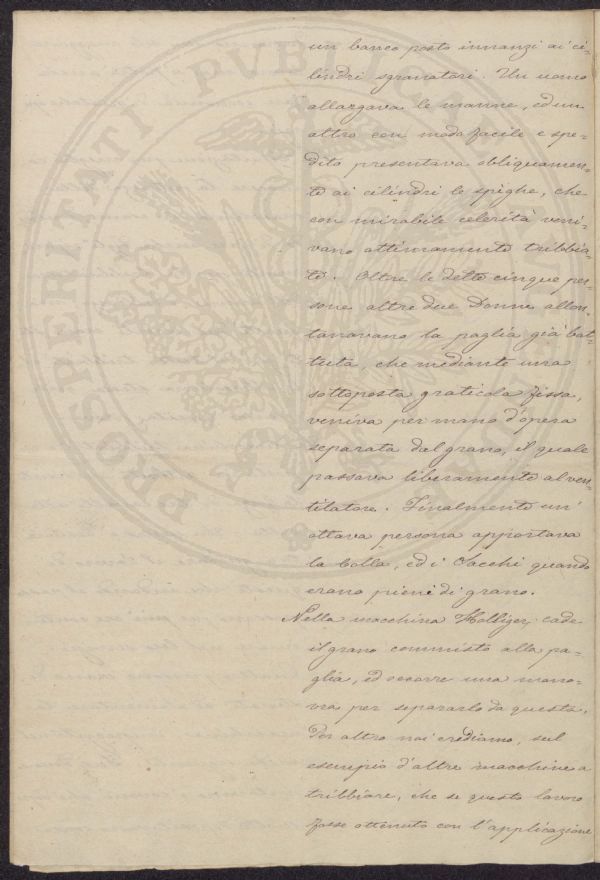 un banco posto innanzi ai ci-
lindri sgranatori. Un uomo
allargava le manne, ed un
altro con modo facile e spe-
dito presentava obliquamen-
te ai cilindri le spighe, che
con mirabile celerità veni-
vano ottimamente tribbia-
te. Oltre le dette cinque per-
sone altre due Donne allon-
tanavano la paglia già bat-
tuta, che mediante una
sottoposta graticola fissa,
veniva per mano d'opera
separata dal grano, il quale
passava liberamente al ven-
tilatore. Finalmente un'
ottava persona apportava
la bolla, ed i Sacchi quando
erano pieni di grano.
Nella macchina Holliger, cade
il grano commisto alla pa-
glia, ed occorre una mano-
vra per separarlo da questa.
Per altro noi crediamo, sul
esempio d'altre macchine a
tribbiare, che se questo lavoro
fosse ottenuto con l'applicazione
PROSPERITATI PUBLICAE